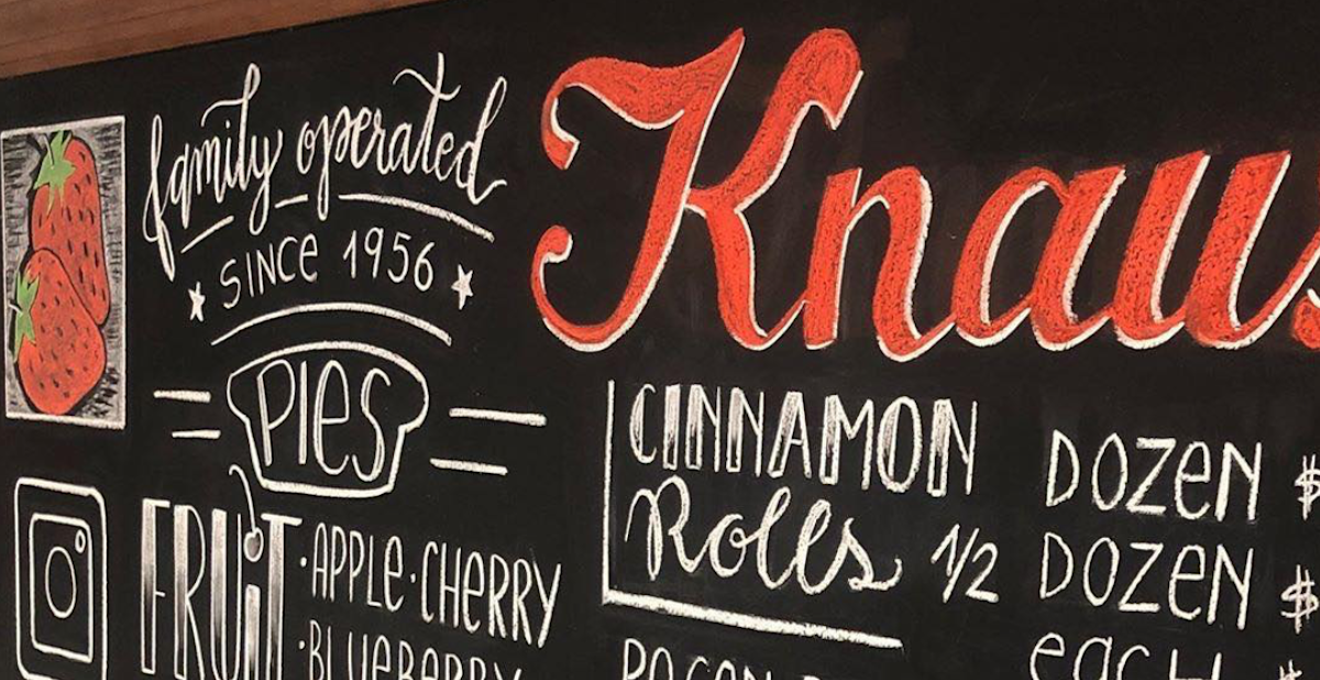 family operated
SINCE 1956
PIES
FRUIT
·APPLE·CHERRY
·BLUEBERRY
Knaus
CINNAMON
Rolls
DOZEN $
1/2 DOZEN $
each $